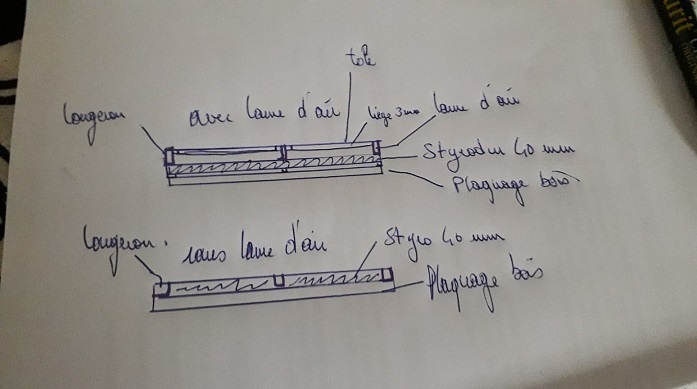 tole
longeron avec lame d'air liège 3mm lame d'air
Styrodur 40 mm
Plaquage bois
longeron. sans lame d'air Styro 40 mm
Plaquage bois